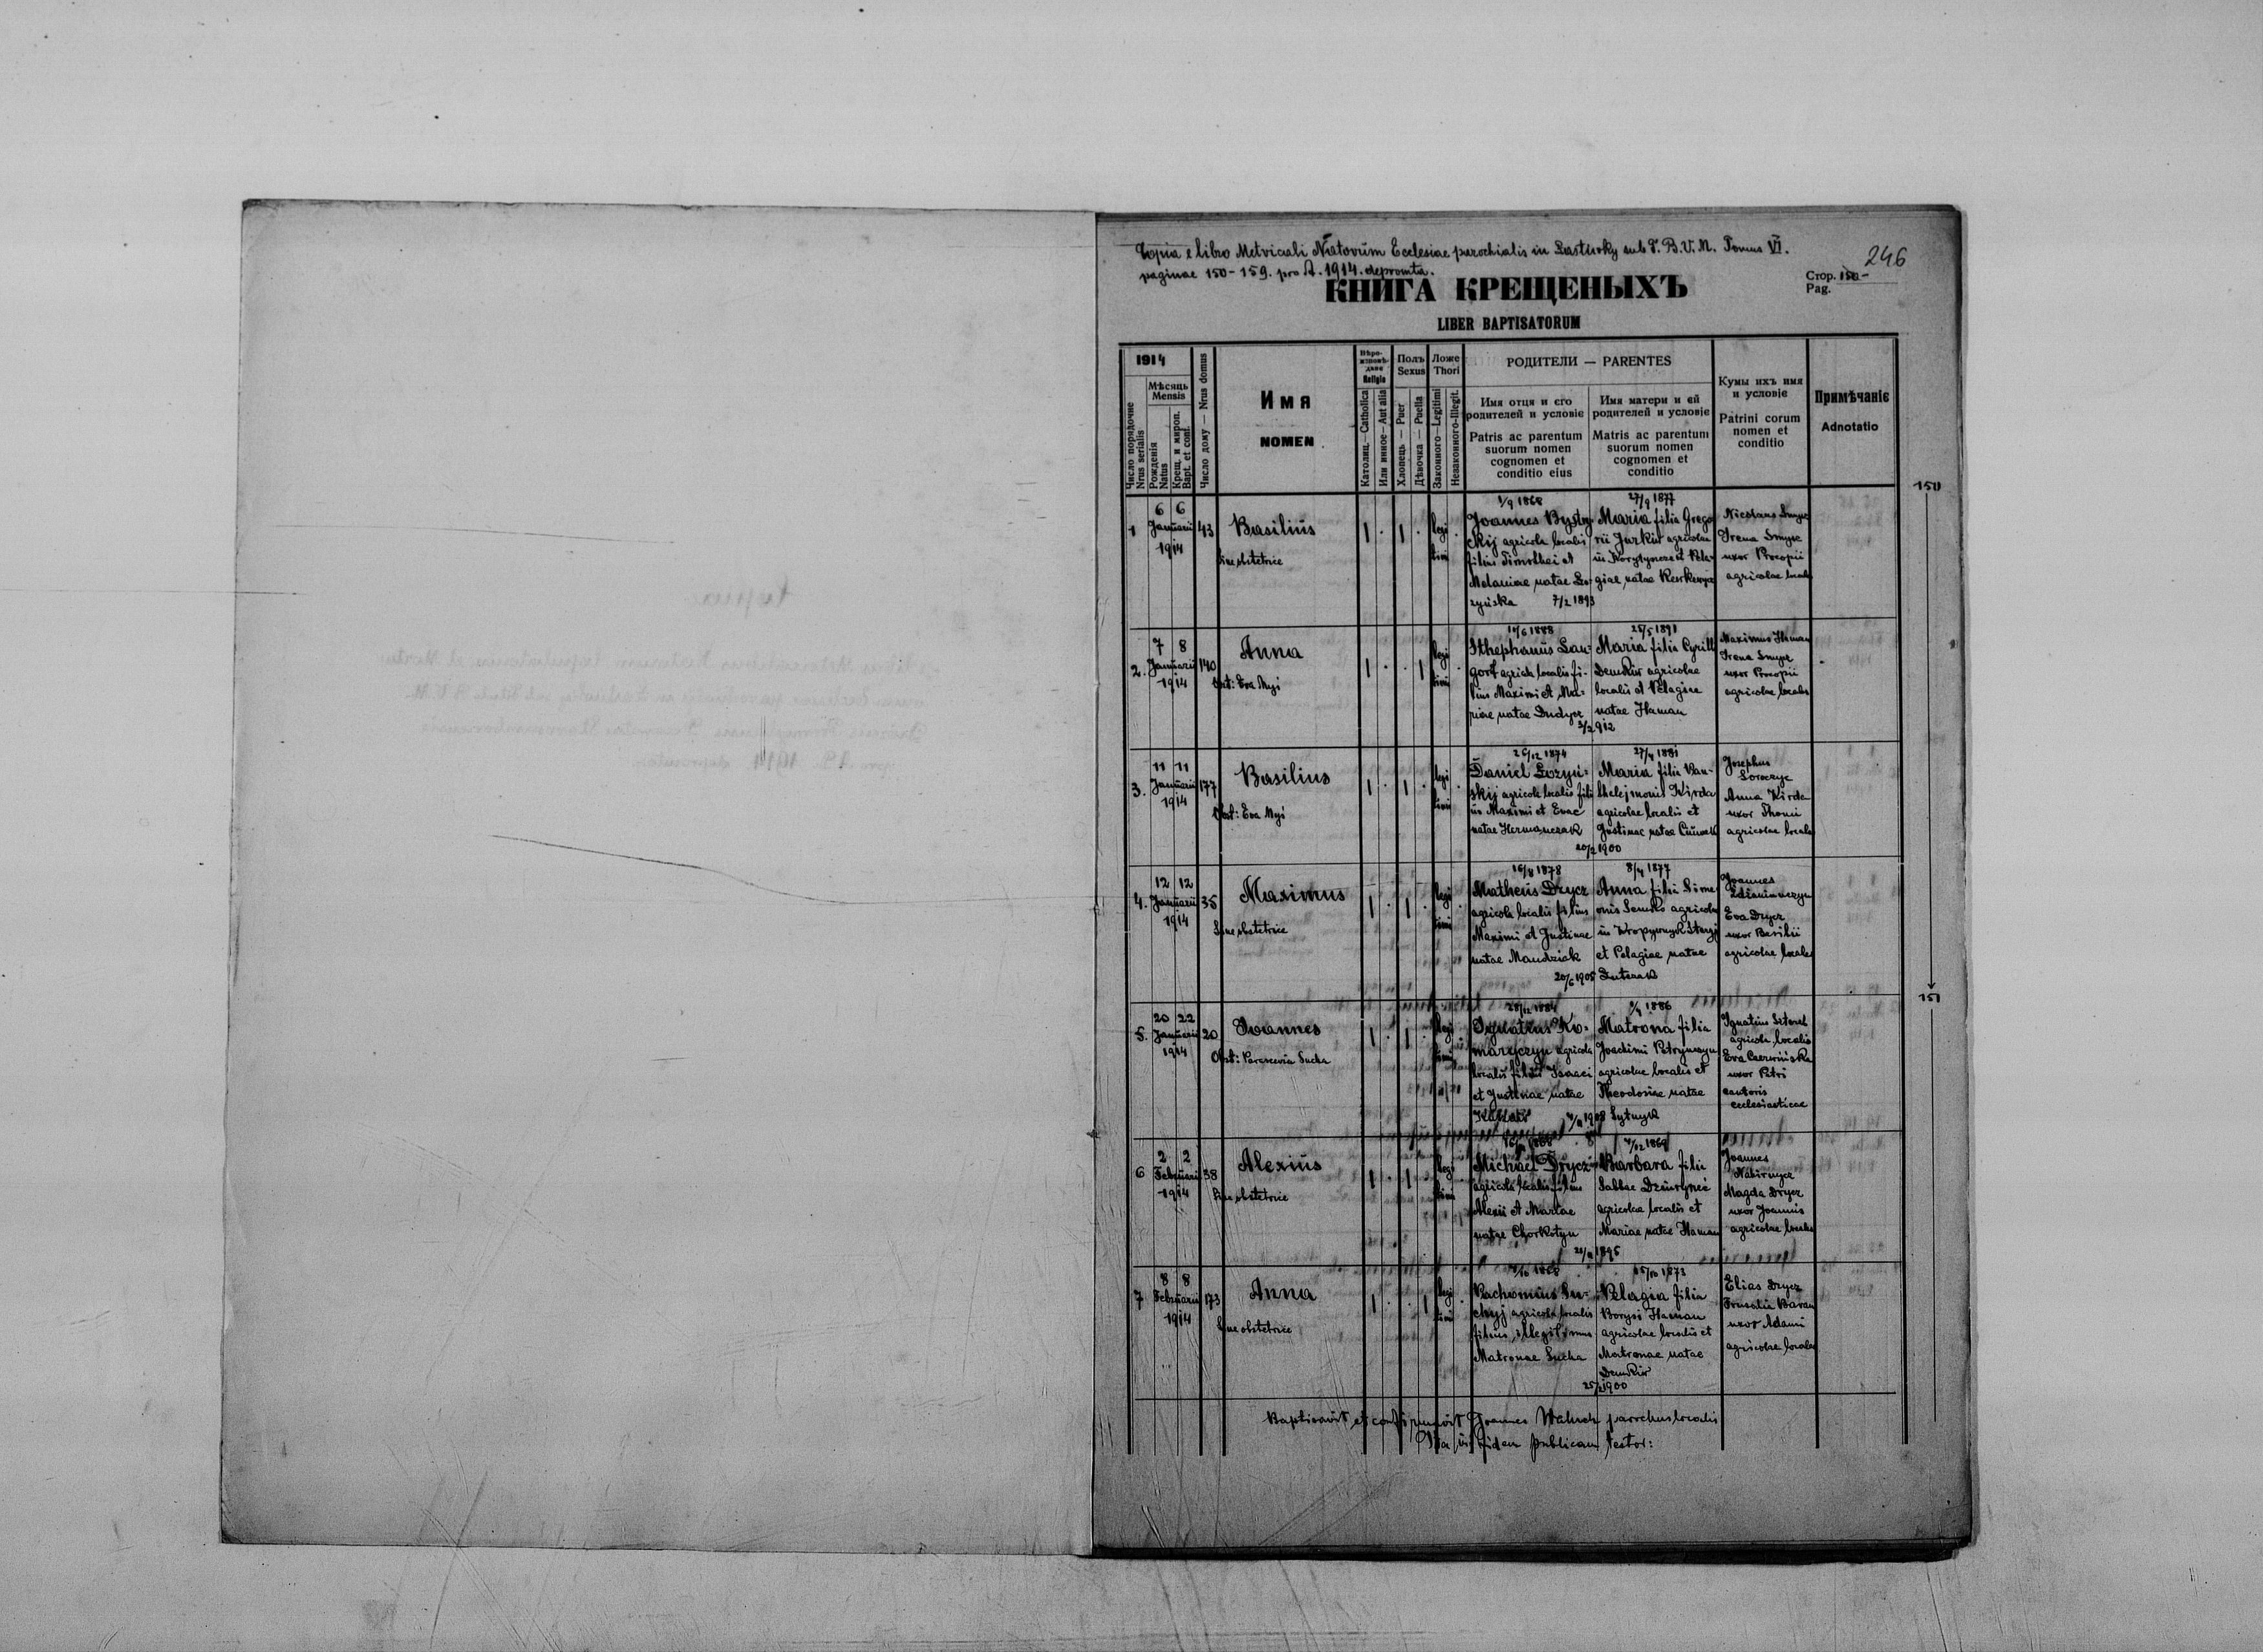 Copia e libro Metricali Natorum Ecclesiae parochialis in Lastivky sub T. B.V.M. Tomus VI.
paginae 150-159. pro A. 1914. depromta.
246
КНИГА КРЕЩЕНЫХЪ
Стор. 150-
Pag.
LIBER BAPTISATORUM
1914
Число порядочне
Nrus serialis
Мѣсяць
Mensis
Рожденія
Natus
Крещ. и миров.
Bapt. et conf.
Число дому — Nrus domus
Имя
NOMEN
Вѣро-
исповѣ-
даніе
Religio
Католиц.—Catholica
Или инное—Aut alia
Полъ
Sexus
Хлопець — Puer
Дѣвочка — Puella
Ложе
Thori
Законного—Legitimi
Незаконного—Illegit.
РОДИТЕЛИ — PARENTES
Имя отця и єго
родителей и условіе
Patris ac parentum
suorum nomen
cognomen et
conditio eius
Имя матери и ей
родителей и условіе
Matris ac parentum
suorum nomen
cognomen et
conditio
Кумы ихъ имя
и условіе
Patrini eorum
nomen et
conditio
Примѣчаніє
Adnotatio
150
1
6 6
Januarii
1914
43
Basilius
Sine obstetrice
legi
timi
1/9 1868
Joannes Bystry-
ckij agricola localis
filius Timothei et
Melaniae natae Lo-
zynska 7/2 1893
27/9 1877
Maria filia Grego
rii Jurkiw agricolae
Nicolaus Smyc
Irena Smyc
uxor Procopii
agricolae localis
2.
7 8
Januarii
1914
140
Anna
Obst: Eva Myi
legi
timi
10/6 1888
Sthephanus Lau-
gort agricola localis fi-
lius Maximi et Ma-
riae natae Dudycz
25/5 1891
Maria filia Cyrilli
Demkiw agricolae
localis et Pelagiae
natae Haman
3/2 912
Maximus Haman
Irena Smyc
uxor Procopii
agricolae localis
3.
11 11
Januarii
1914
177
Basilius
Obst: Eva Myi
legi
timi
26/12 1874
Daniel Lozyn-
skij agricola localis fili
us Maximi et Evae
natae Hermanczak
27/4 1881
Maria filia Pan-
thelejmonis Kirda
agricolae localis et
Justinae natae
20/2 1900
Josephus
Anna Kirda
uxor Thomi
agricolae localis
4.
12 12
Januarii
1914
35
Maximus
Sine obstetrice
legi
timi
16/8 1878
Matheus Drycz
agricola localis filius
Maximi et Justinae
natae Mandziak
8/4 1877
Anna filia Sime
onis Senko agricolae
in Kropywnyk Staryj
et Pelagiae natae
20/6 1905
Joannes
Eva Drycz
uxor Basilii
agricolae localis
151
5.
20 22
Januarii
1914
20
Ioannes
Obst: Parascevia Sucha
legi
timi
28/12 1884
Ignatius Ko-
marczyn agricola
localis filius Isaaci
et Justinae natae
1886
Matrona filia
Joachimi
agricolae localis et
Theodosiae natae
1908 Sytnyk
Ignatius
agricola localis
Eva Czerwinska
uxor Petri
cantoris
ecclesiasticae
6
2 2
Februarii
1914
38
Alexius
Sine obstetrice
legi
timi
Michael Drycz
agricola localis filius
Alexii et Mariae
natae Chorkotyn
4/12 1869
Barbara filia
Sabbae
agricolae localis et
Mariae natae Haman
1895
Joannes
Magda Drycz
uxor Joannis
agricolae localis
7
8 8
Februarii
1914
173
Anna
Sine obstetrice
legi
timi
Pachomius Su-
chyj agricola localis
filius illegitimus
Matronae Sucha
15/10 1873
Pelagia filia
Borysi Haman
agricolae localis et
Matronae natae
Demkiw
25/2 1900
Elias Drycz
Baran
uxor Adami
agricolae localis
Baptisavit et confirmavit Joannes parochus localis
Ita in fidem publicam testor: